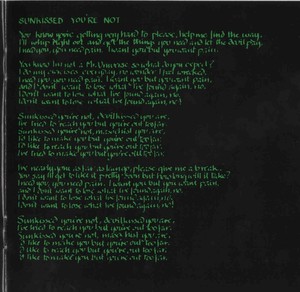 SUNKISSED YOU'RE NOT
You know you're getting very hard to please, help me find the way.
I'll whip right out and get the things you need and let the devil pay.
I need you, you need pain. I want you but you want pain.
You know I'm not a Mr. Universe so what do you expect?
I do my exercises everyday, no wonder I feel wrecked.
I need you, you need pain. I want you but you want pain,
and I don't want to lose what I've found again, no.
I don't want to lose what I've found again, no,
I don't want to lose what I've found again, no!
Sunkissed you're not, devilkissed you are.
I've tried to reach you but you're out too far.
Sunkissed you're not, masochist you are.
I'd like to make you but you're out too far.
I'd like to reach you but you're out too far.
I've tried to make you but you're out too far.
I've nearly gone as far as I can go, please give me a break.
You say I'll get to like it pretty soon but how long will it take?
I need you, you need pain. I want you but you want pain,
and I don't want to lose what I've found again, no.
I don't want to lose what I've found again, no,
I don't want to lose what I've found again, no!
Sunkissed you're not, devilkissed you are.
I've tried to reach you but you're out too far.
Sunkissed you're not, masochist you are.
I'd like to make you but you're out too far.
I'd like to reach you but you're out too far.
I've tried to make you but you're out too far.